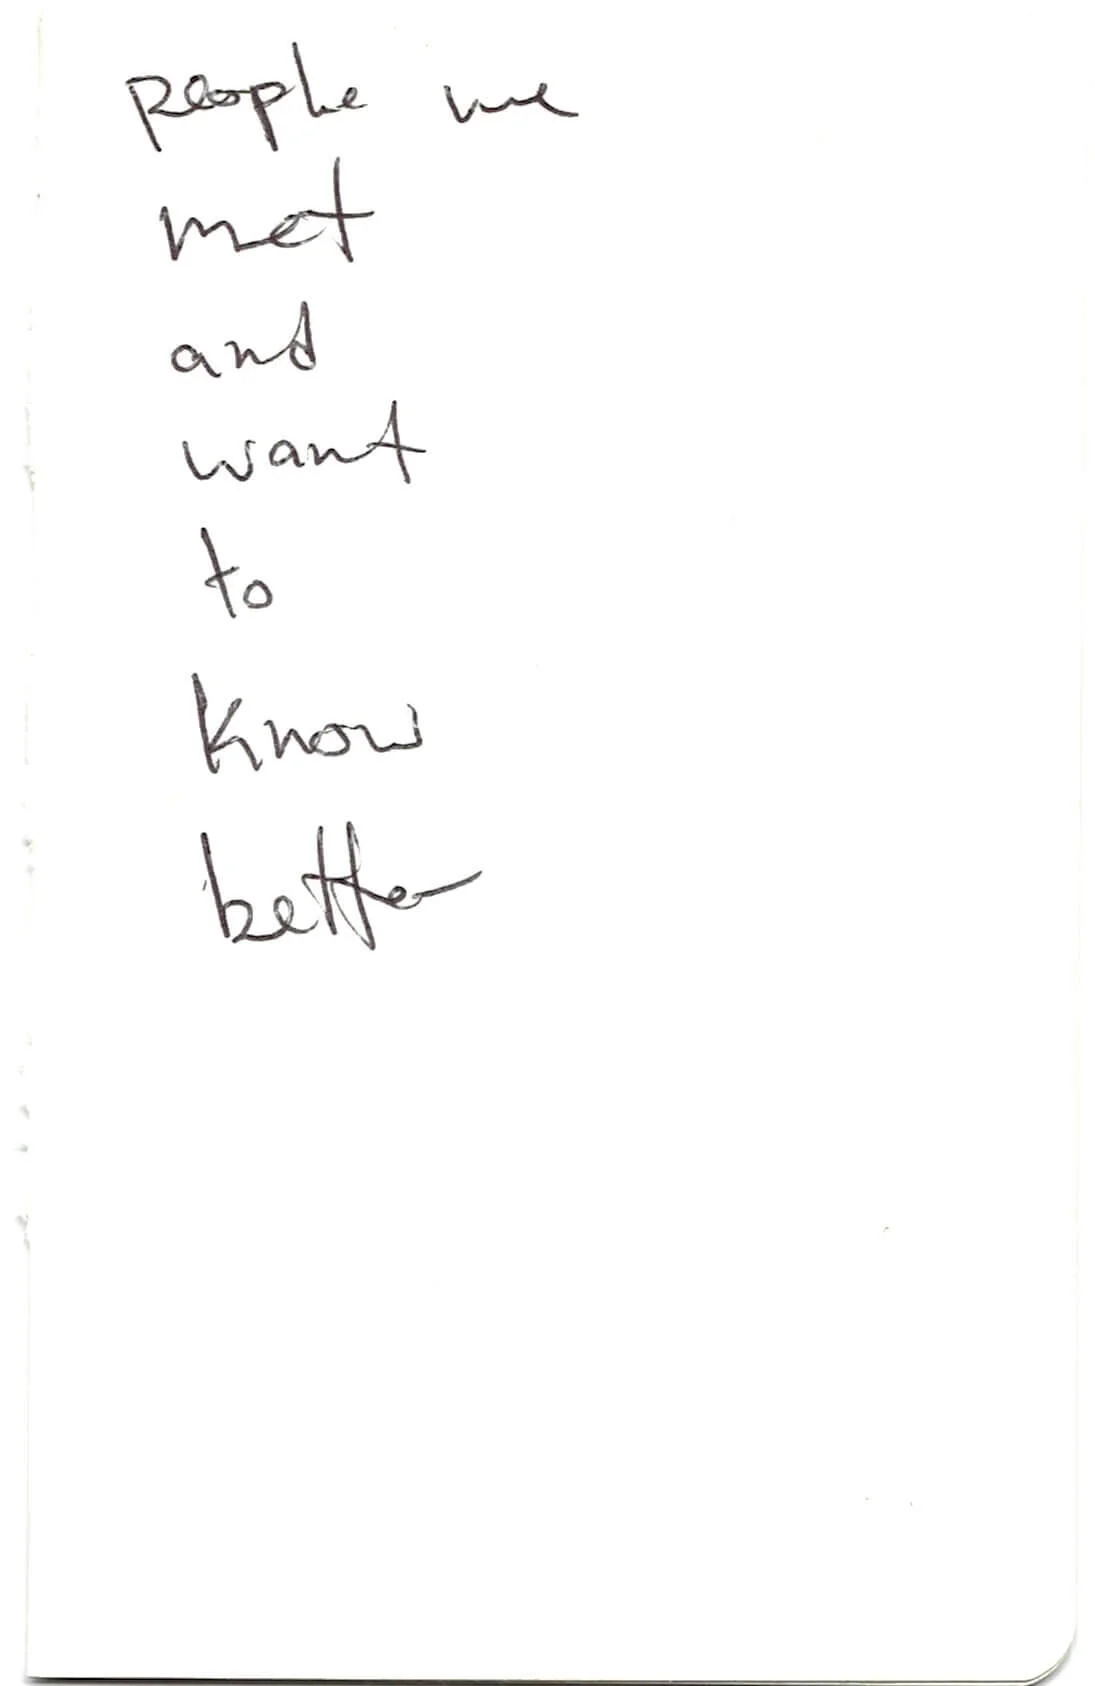 people we
met
and
want
to
know
better